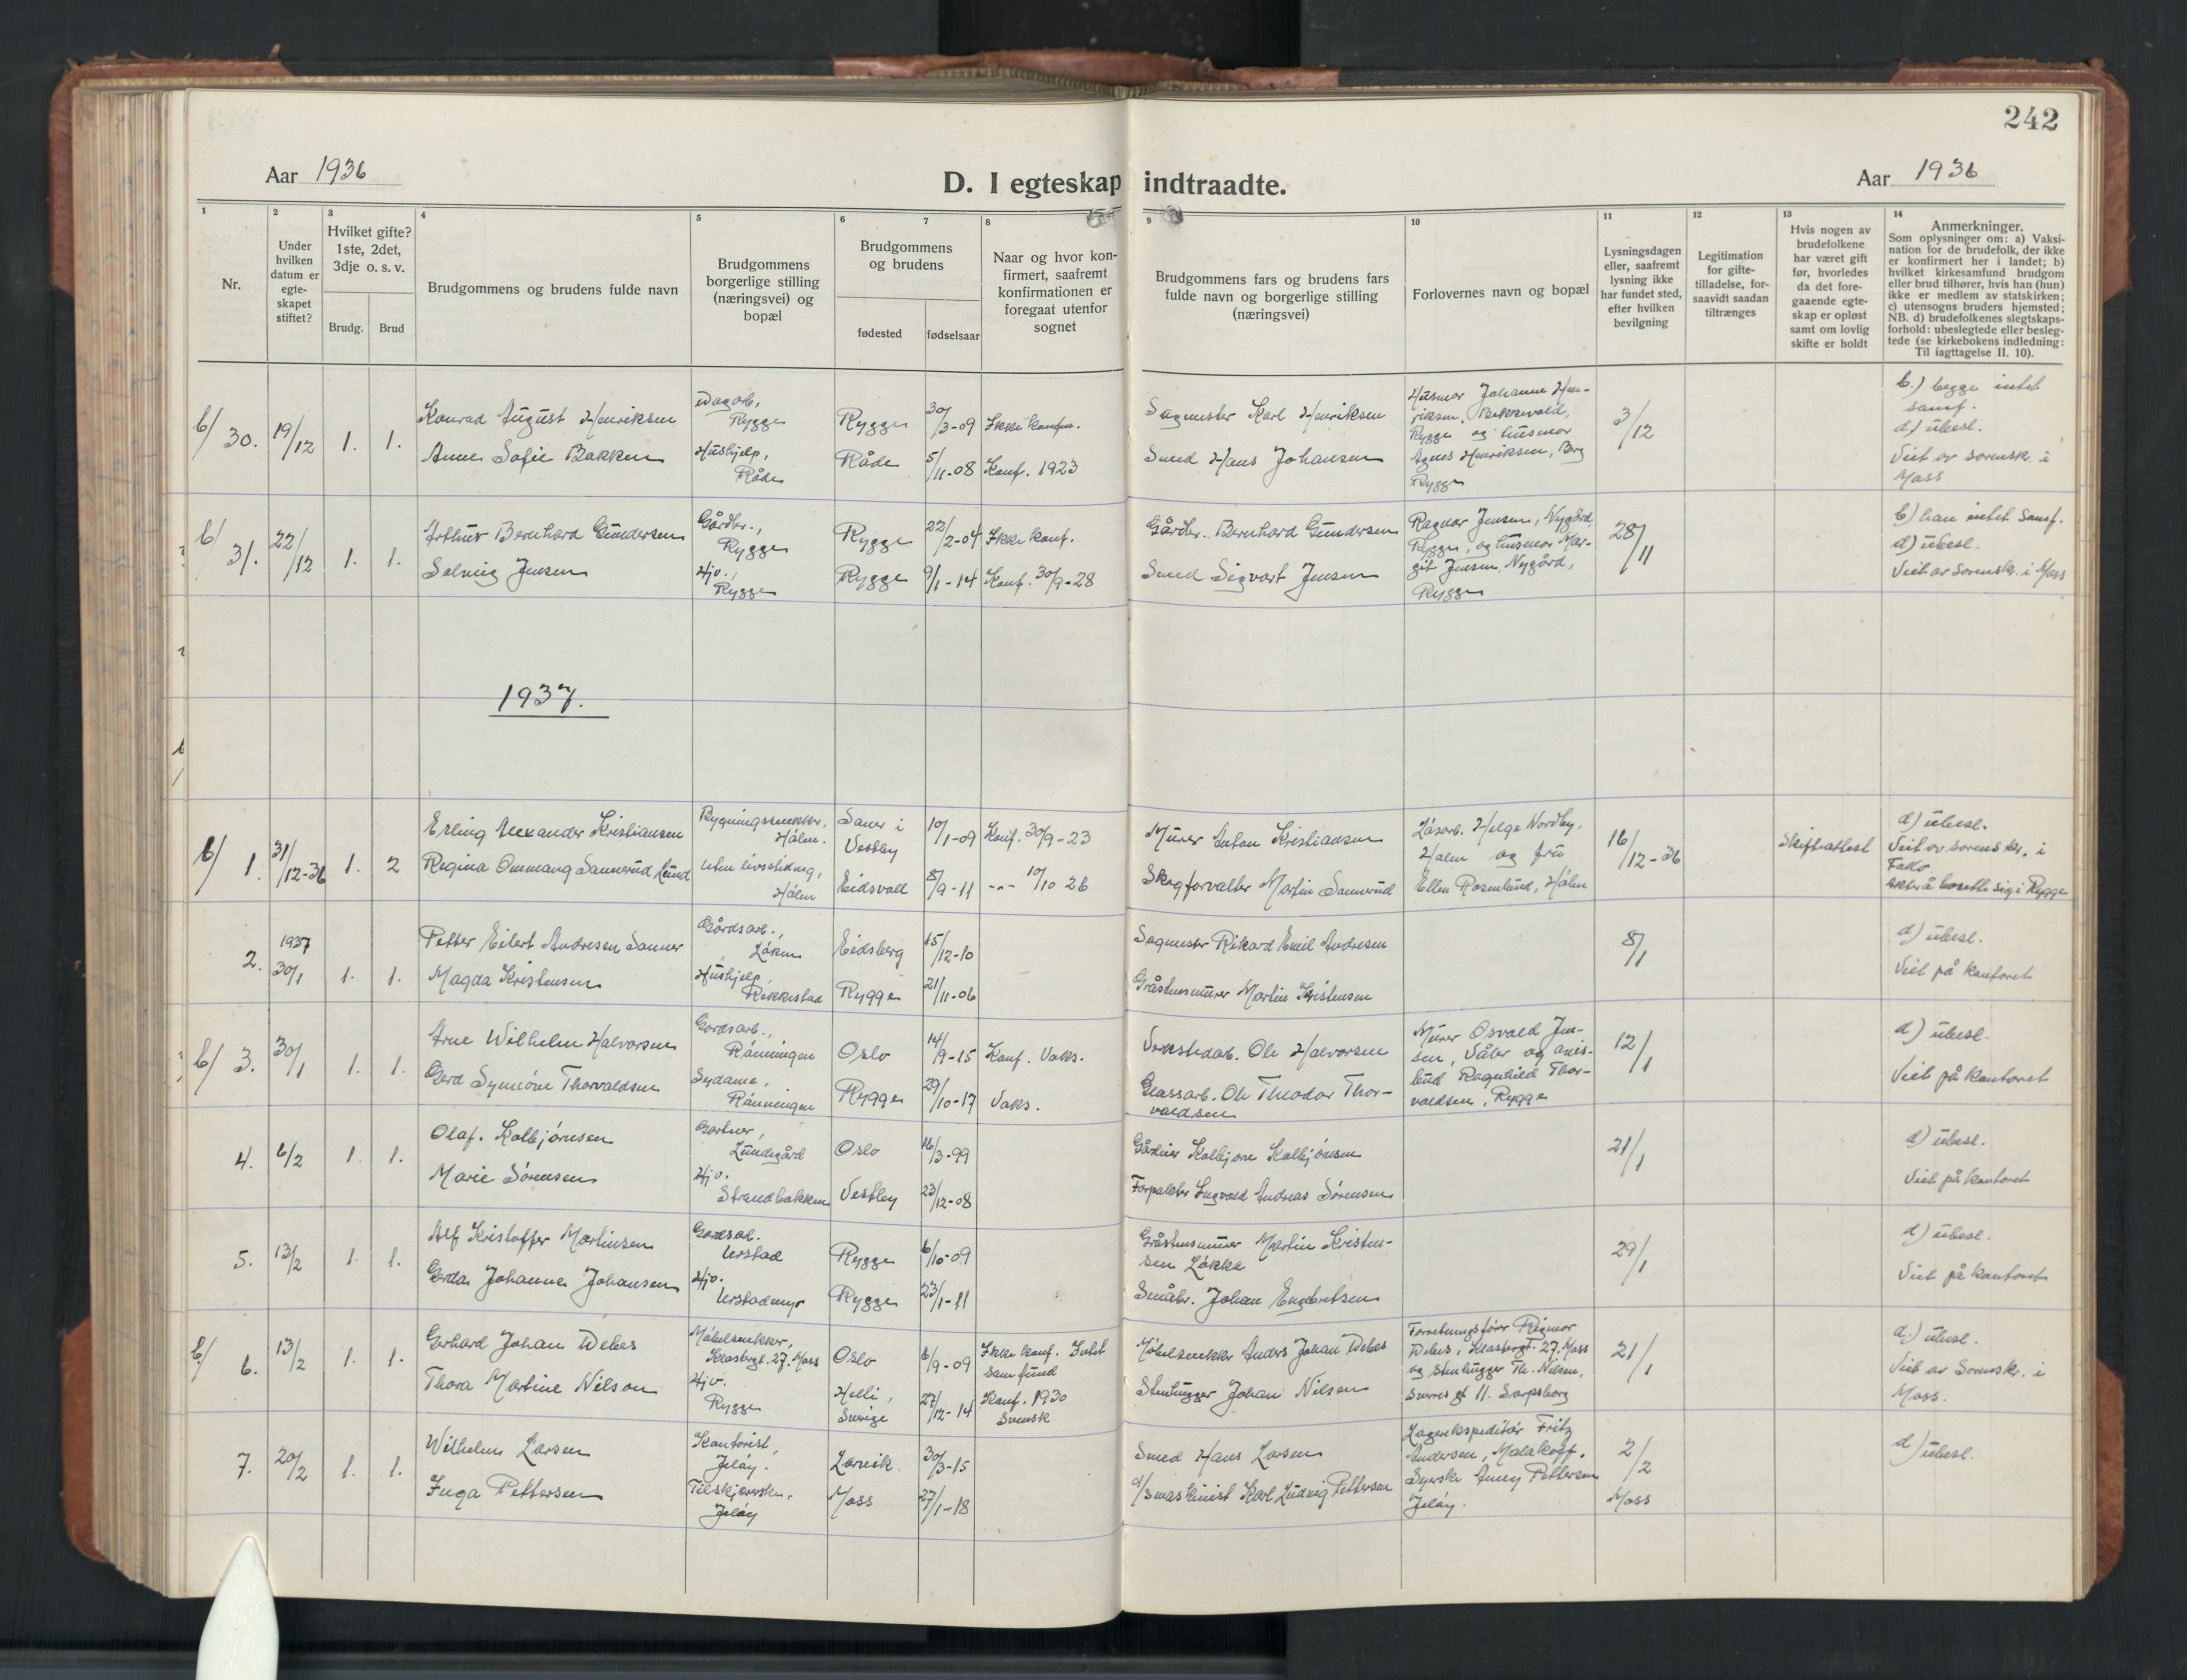 242
Aar 1936
D. I egteskap indtraadte.
Aar 1936
1
2
3
4
5
6
7
8
9
10
11
12
13
14
Nr.
Under
hvilken
datum er
egte-
skapet
stiftet?
Hvilket gifte?
1ste, 2det,
3dje o. s. v.
Brudg.
Brud
Brudgommens og brudens fulde navn
Brudgommens
borgerlige stilling
(næringsvei) og
bopæl
Brudgommens
og brudens
fødested
fødselsaar
Naar og hvor kon-
firmert, saafremt
konfirmationen er
foregaat utenfor
sognet
Brudgommens fars og brudens fars
fulde navn og borgerlige stilling
(næringsvei)
Forlovernes navn og bopæl
Lysningsdagen
eller, saafremt
lysning ikke
har fundet sted,
efter hvilken
bevilgning
Legitimation
for gifte-
tilladelse, for-
saavidt saadan
tiltrænges
Hvis nogen av
brudefolkene
har været gift
før, hvorledes
da det fore-
gaaende egte-
skap er opløst
samt om lovlig
skifte er holdt
Anmerkninger.
Som oplysninger om: a) Vaksi-
nation for de brudefolk, der ikke
er konfirmert her i landet; b)
hvilket kirkesamfund brudgom
eller brud tilhører, hvis han (hun)
ikke er medlem av statskirken;
c) utensogns bruders hjemsted;
NB. d) brudefolkenes slegtskaps-
forhold: ubeslegtede eller besleg-
tede (se kirkebokens indledning:
Til iagttagelse II. 10).
b/ 30.
19/12
1.
1.
Konrad August Henriksen
Anne Sofie Bakken
Dagarb.,
Rygge
Hushjelp,
Råde
Rygge
Råde
30/3-09
5/11-08
Ikke konf.
Konf. 1923
Sagmester Karl Henriksen
Smed Hans Johansen
Husmor Johanne Hen-
riksen, Bekkevold,
Rygge og husmor
Agnes Henriksen, Berg
Rygge
3/12
b.) begge intet
samf.
d) ubesl.
Viet av sorenskr. i
Moss
b/ 31.
22/12
1.
1.
Arthur Bernhard Gundersen
Solveig Jensen
Gårdbr.,
Rygge
Hjv.,
Rygge
Rygge
Rygge
22/2-04
9/1-14
Ikke konf.
Konf. 30/9-28
Gårdbr. Bernhard Gundersen
Smed Sigvart Jensen
Ragnar Jensen, Nygård,
Rygge, og husmor Mar-
git Jensen, Nygård,
Rygge
28/11
b) han intet samf.
d) ubesl.
Viet av Sorenskr. i Moss
1937.
b/ 1.
31/12-36
1.
2
Erling Alexander Kristiansen
Regina Ommang Sannerud Lund
Bygningssnekker,
Hølen.
Uten livsstilling,
Hølen
Saner i
Vestby
Eidsvoll
10/1-09
8/9-11
Konf. 30/9-23
-"- 10/10 26
Murer Anton Kristiansen
Skogforvalter Martin Sannerud
Løsarb. Helge Nordby,
Hølen og fru
Ellen Rosenlund, Hølen
16/12-36
Skifteattest
d) ubesl.
Viet av sorenskr. i
Follo
akter å bosette sig i Rygge
2.
1937
30/1
1.
1.
Petter Eilert Andresen Sanner
Magda Kristensen
Gårdsarb.,
Løken
Hushjelp,
Rekkestad
Eidsberg
Rygge
15/12-10
21/11-06
Sagmester Rikard Emil Andresen
Gråstensmurer Martin Kristensen
8/1
d) ubesl.
Viet på kontoret
b/ 3.
30/1
1.
1.
Arne Wilhelm Halvorsen
Gerd Synnøve Thorvaldsen
Gårdsarb.,
Rønningen
Sydame,
Rønningen
Oslo
Rygge
14/9-15
29/10-17
Konf. Vaks.
Vaks.
Verkstedarb. Ole Halvorsen
Glassarb. Ole Theodor Thor-
valdsen
Murer Osvald Jen-
sen, Våler og avis-
bud Ragnhild Thor-
valdsen, Rygge
12/1
d) ubesl.
Viet på kontoret
4.
6/2
1.
1.
Olaf Kolbjørnsen
Marie Sørensen
Gartner,
Lundegård
Hjv.
Strandbakken
Oslo
Vestby
16/3-99
23/12-08
Gårdeier Kolbjørn Kolbjørnsen
Forpakter Ingvald Andreas Sørensen
21/1
d) ubesl.
Viet på kontoret
5.
13/2
1.
1.
Alf Kristoffer Martinsen
Gerda Johanne Johansen
Gårdsarb.
Verstad
Hjv.
Verstadmyr
Rygge
Rygge
6/10-09
23/1-11
Gråstensmurer Martin Kristen-
sen Løkke
Småbr. Johan Engebretsen
29/1
d) ubesl.
Viet på kontoret
b/ 6.
13/2
1.
1.
Gerhard Johan Debes
Thora Martine Nilson
Møbelsnekker,
Klosbergt. 27. Moss
Hjv.
Rygge
Oslo
Helli,
Sverige
6/9-09
27/12-14
Ikke konf. Intet
samfund
Konf. 1930
Svensk
Møbelsnekker Anders Johan Debes
Stenhugger Johan Nilsen
Forretningsfører Rigmor
Debes, Klosbergt. 27. Moss
og Stenhugger Th. Nilsen,
Sverres gt 11. Sarpsborg
21/1
d.) ubesl.
Viet av Sorenskr. i
Moss.
7.
20/2
1.
1.
Wilhelm Larsen
Inga Pettersen
Kontorist,
Jeløy.
Tilskjærerske,
Jeløy
Larvik
Moss
30/3-15
27/1-18
Smed Hans Larsen
d/s maskinist Karl Ludvig Pettersen
Lagerekspeditør Fritz
Andersen, Malakoff.
Syerske Anny Pettersen
Jeløy.
2/2
Moss
d) ubesl.